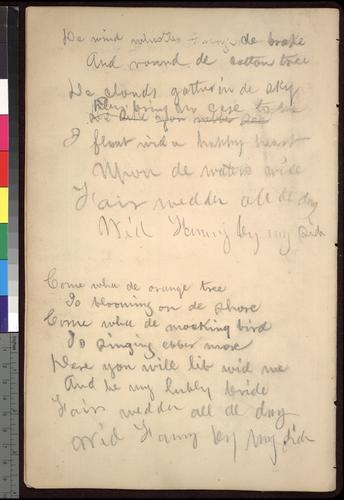 De wind whistles de brake
And round de cotton tree
De clouds gathers in de sky
Dey bring no  to me
 you never see
I float wid a habby heart
Upon de waters wide
Fair wedder all de day
Wid Fanny by my side
Come wha de orange tree
Is blooming on de shore
Come wha de mocking bird
Is singing ebber more
Dere you will lib wid me
And be my lubly bride
Fair wedder all de day
Wid Fanny by my side